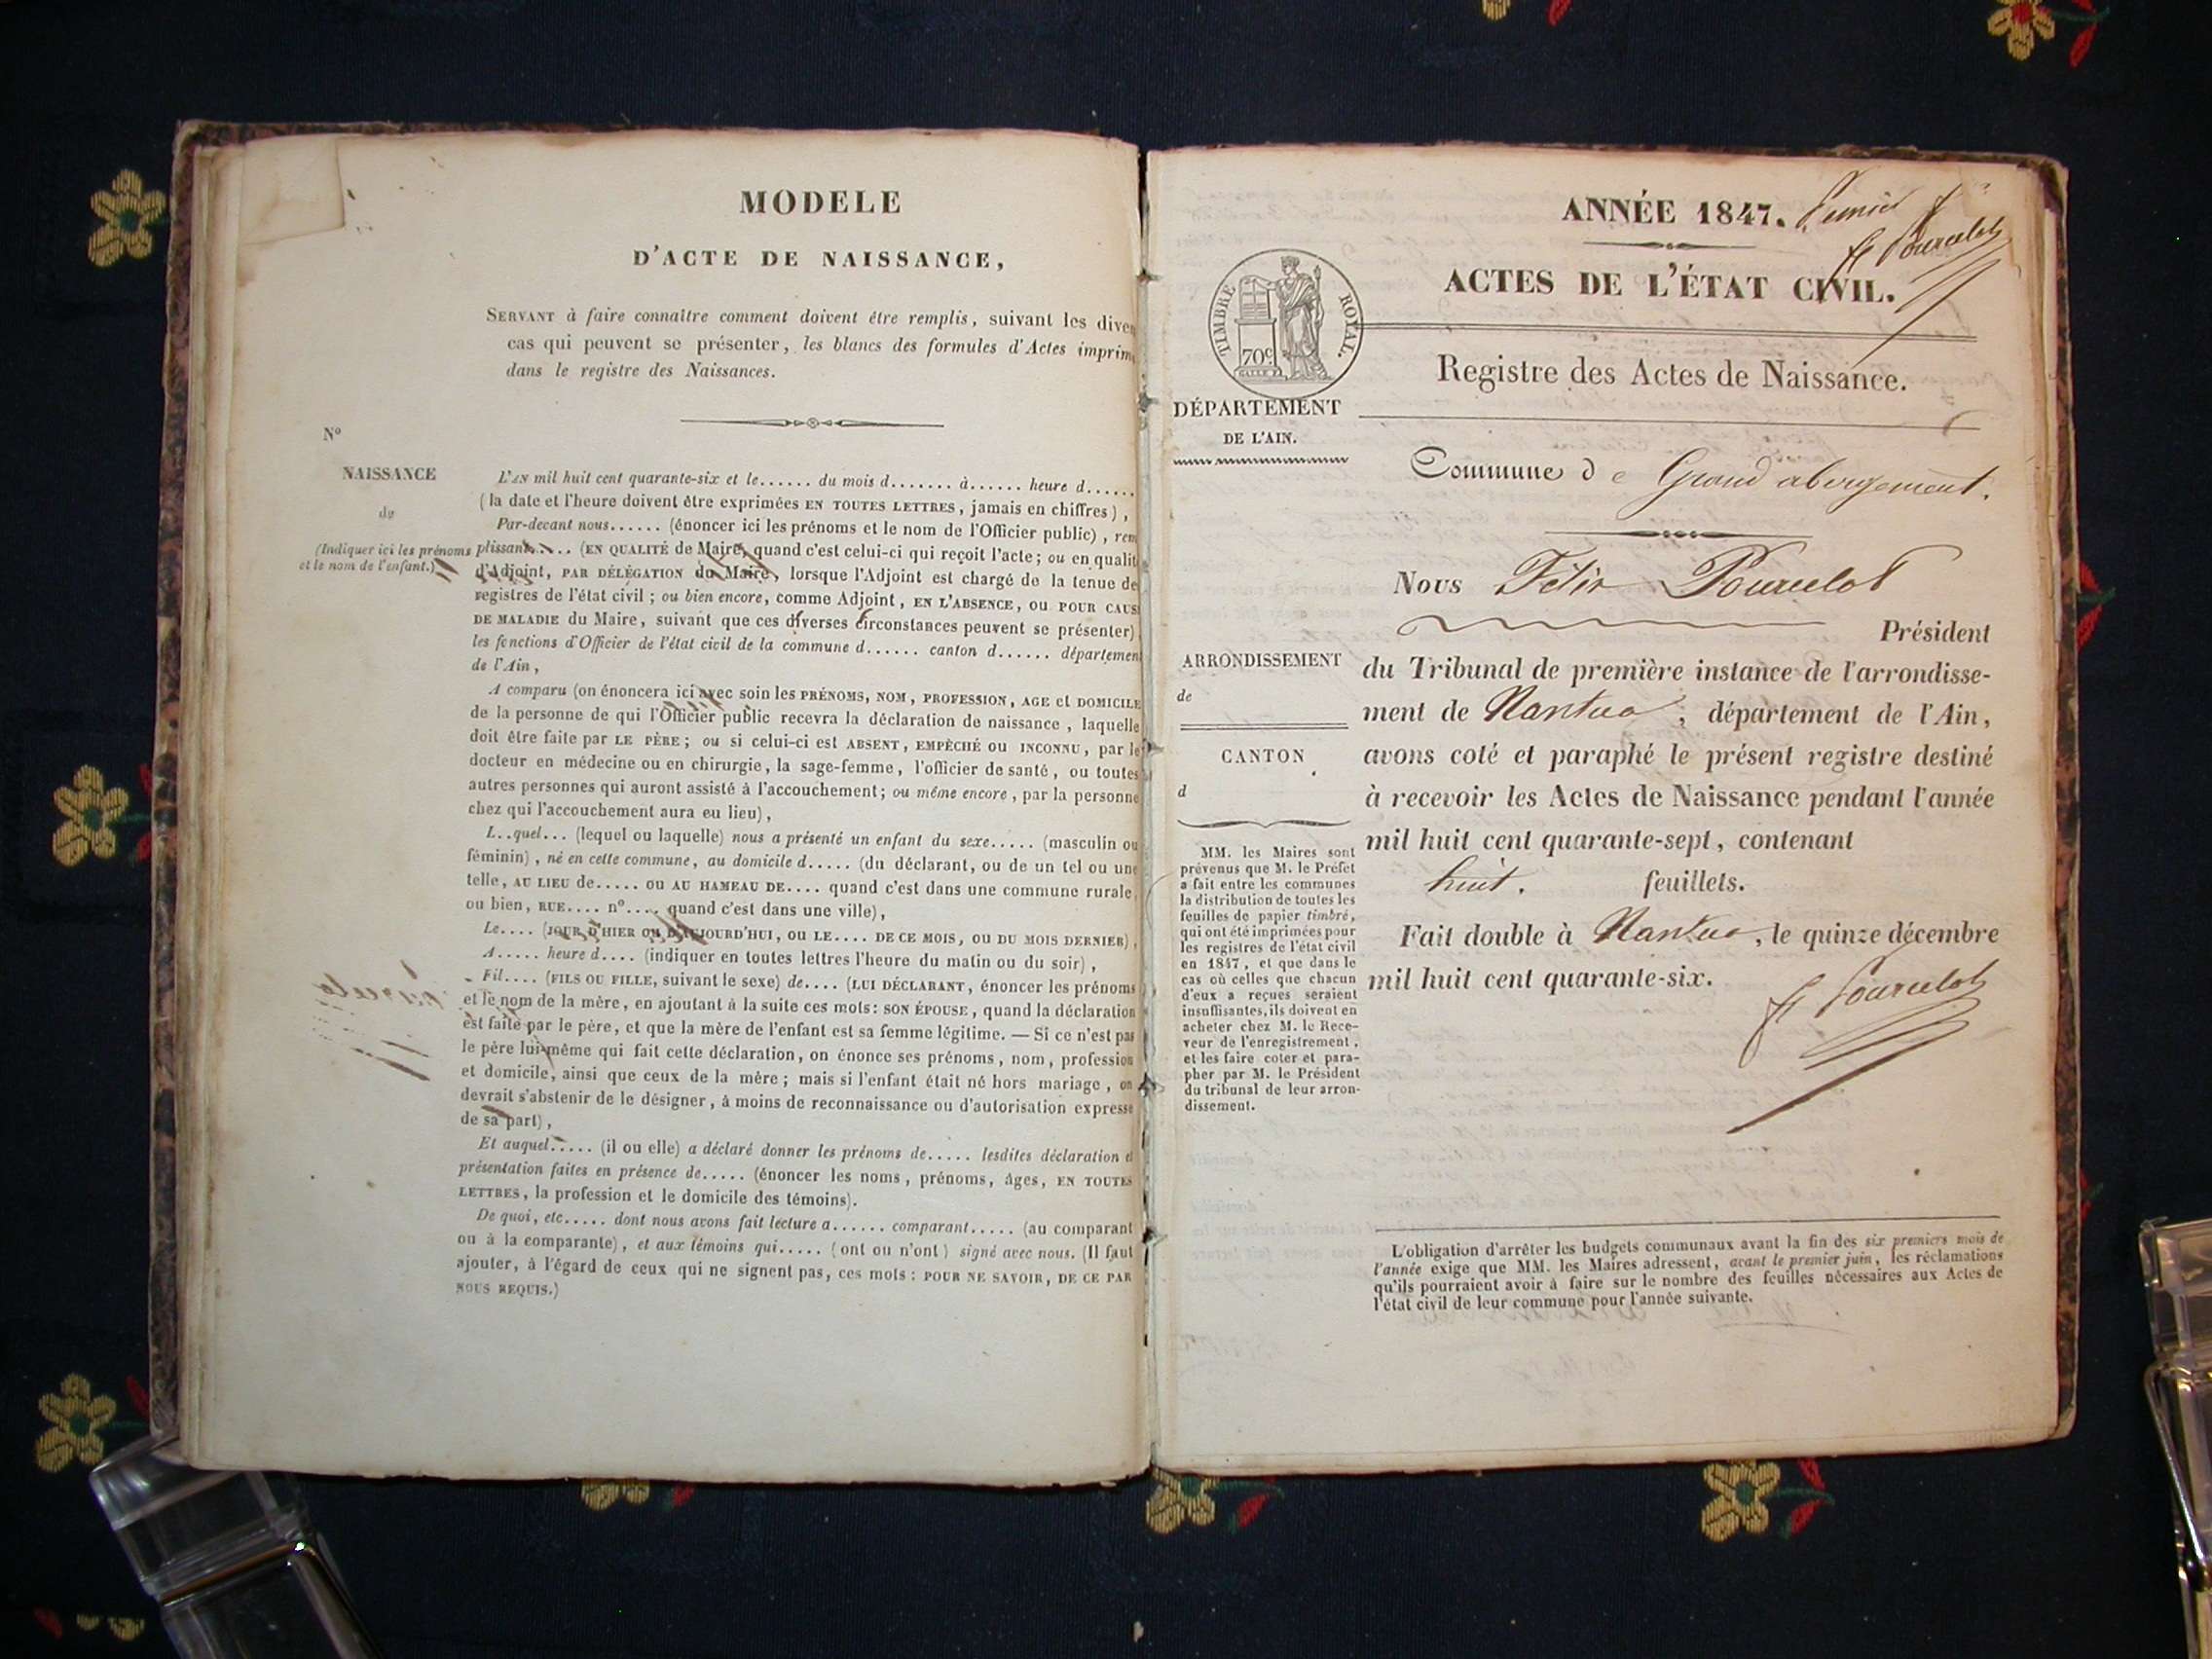 MODELE
D'ACTE DE NAISSANCE,
SERVANT à faire connaître comment doivent être remplis, suivant les diver
cas qui peuvent se présenter, les blancs des formules d'Actes imprim
dans le registre des Naissances.
N°
NAISSANCE
de
(Indiquer ici les prénoms
et le nom de l'enfant.)
L'AN mil huit cent quarante-six et le...... du mois d....... à...... heure d......
(la date et l'heure doivent être exprimées EN TOUTES LETTRES, jamais en chiffres),
Par-devant nous...... (énoncer ici les prénoms et le nom de l'Officier public), rem
plissant..... (EN QUALITÉ de Maire, quand c'est celui-ci qui reçoit l'acte; ou en qualit
d'Adjoint, PAR DÉLÉGATION du Maire, lorsque l'Adjoint est chargé de la tenue de
registres de l'état civil; ou bien encore, comme Adjoint, EN L'ABSENCE, OU POUR CAUS
DE MALADIE du Maire, suivant que ces diverses circonstances peuvent se présenter)
les fonctions d'Officier de l'état civil de la commune d...... canton d...... départemen
de l'Ain,
A comparu (on énoncera ici avec soin les PRÉNOMS, NOM, PROFESSION, AGE et DOMICILE
de la personne de qui l'Officier public recevra la déclaration de naissance, laquelle
doit être faite par LE PÈRE; ou si celui-ci est ABSENT, EMPÊCHÉ ou INCONNU, par le
docteur en médecine ou en chirurgie, la sage-femme, l'officier de santé, ou toutes
autres personnes qui auront assisté à l'accouchement; ou même encore, par la personne
chez qui l'accouchement aura eu lieu),
L..quel... (lequel ou laquelle) nous a présenté un enfant du sexe..... (masculin ou
féminin), né en cette commune, au domicile d..... (du déclarant, ou de un tel ou une
telle, AU LIEU de..... ou AU HAMEAU DE.... quand c'est dans une commune rurale,
ou bien, RUE.... n°.... quand c'est dans une ville),
Le.... (JOUR D'HIER OU D'AUJOURD'HUI, OU LE.... DE CE MOIS, OU DU MOIS DERNIER),
A..... heure d.... (indiquer en toutes lettres l'heure du matin ou du soir),
Fil.... (FILS OU FILLE, suivant le sexe) de.... (LUI DÉCLARANT, énoncer les prénoms
et le nom de la mère, en ajoutant à la suite ces mots: SON ÉPOUSE, quand la déclaration
est faite par le père, et que la mère de l'enfant est sa femme légitime. — Si ce n'est pas
le père lui-même qui fait cette déclaration, on énonce ses prénoms, nom, profession
et domicile, ainsi que ceux de la mère; mais si l'enfant était né hors mariage, on
devrait s'abstenir de le désigner, à moins de reconnaissance ou d'autorisation expresse
de sa part),
Et auquel..... (il ou elle) a déclaré donner les prénoms de..... lesdites déclaration et
présentation faites en présence de..... (énoncer les noms, prénoms, âges, EN TOUTES
LETTRES, la profession et le domicile des témoins).
De quoi, etc..... dont nous avons fait lecture a...... comparant..... (au comparant
ou à la comparante), et aux témoins qui..... (ont ou n'ont) signé avec nous. (Il faut
ajouter, à l'égard de ceux qui ne signent pas, ces mots: POUR NE SAVOIR, DE CE PAR
NOUS REQUIS.)
ANNÉE 1847. Premier f
F Pourcelot
ACTES DE L'ÉTAT CIVIL.
TIMBRE ROYAL.
70c.
Registre des Actes de Naissance.
DÉPARTEMENT
DE L'AIN.
Commune d e Grand abergement.
Nous Félix Pourcelot
Président
ARRONDISSEMENT
de
CANTON
d
du Tribunal de première instance de l'arrondisse-
ment de Nantua, département de l'Ain,
avons coté et paraphé le présent registre destiné
à recevoir les Actes de Naissance pendant l'année
mil huit cent quarante-sept, contenant
huit. feuillets.
Fait double à Nantua, le quinze décembre
mil huit cent quarante-six.
F Pourcelot
MM. les Maires sont
prévenus que M. le Préfet
a fait entre les communes
la distribution de toutes les
feuilles de papier timbré,
qui ont été imprimées pour
les registres de l'état civil
en 1847, et que dans le
cas où celles que chacun
d'eux a reçues seraient
insuffisantes, ils doivent en
acheter chez M. le Rece-
veur de l'enregistrement,
et les faire coter et para-
pher par M. le Président
du tribunal de leur arron-
dissement.
L'obligation d'arrêter les budgets communaux avant la fin des six premiers mois de
l'année exige que MM. les Maires adressent, avant le premier juin, les réclamations
qu'ils pourraient avoir à faire sur le nombre des feuilles nécessaires aux Actes de
l'état civil de leur commune pour l'année suivante.